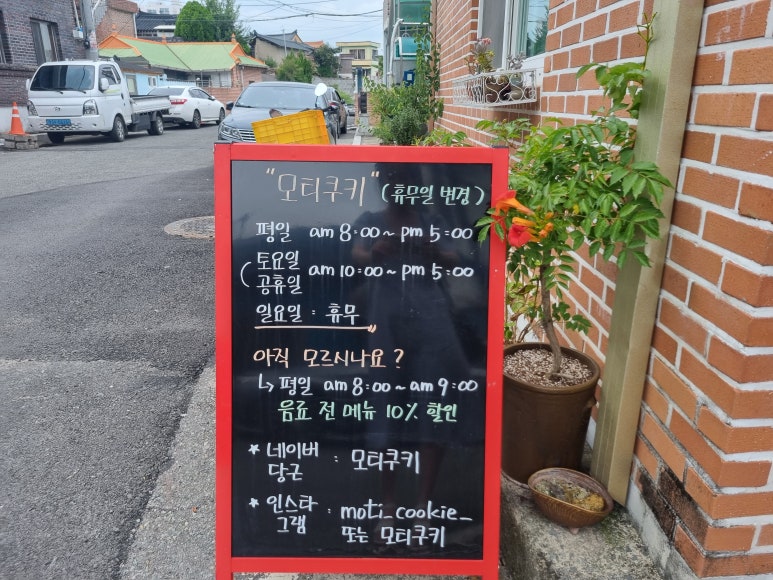 "모티쿠키" (휴무일 변경)
평일 am 8:00~ pm 5:00
( 토요일
공휴일 am 10:00~ pm 5:00
일요일 : 휴무
아직 모르시나요?
↳ 평일 am 8:00~am 9:00
음료 전 메뉴 10% 할인
* 네이버
당근 : 모티쿠키
* 인스타
그램 : moti_cookie_
또는 모티쿠키